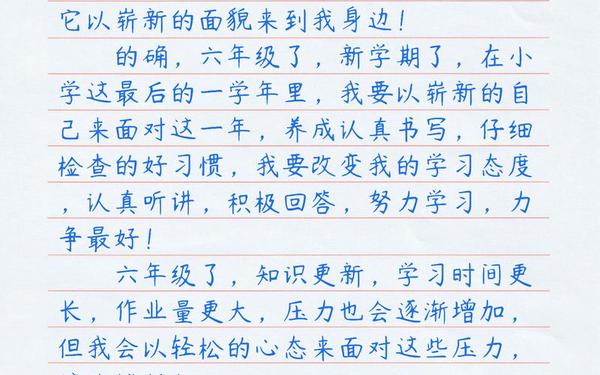 它以崭新的面貌来到我身边！
的确，六年级了，新学期了，在小
学这最后的一学年里，我要以崭新的自
己来面对这一年，养成认真书写，仔细
检查的好习惯，我要改变我的学习态度
，认真听讲，积极回答，努力学习，力
争最好！
六年级了，知识更新，学习时间更
长，作业量更大，压力也会逐渐增加，
但我会以轻松的心态来面对这些压力，